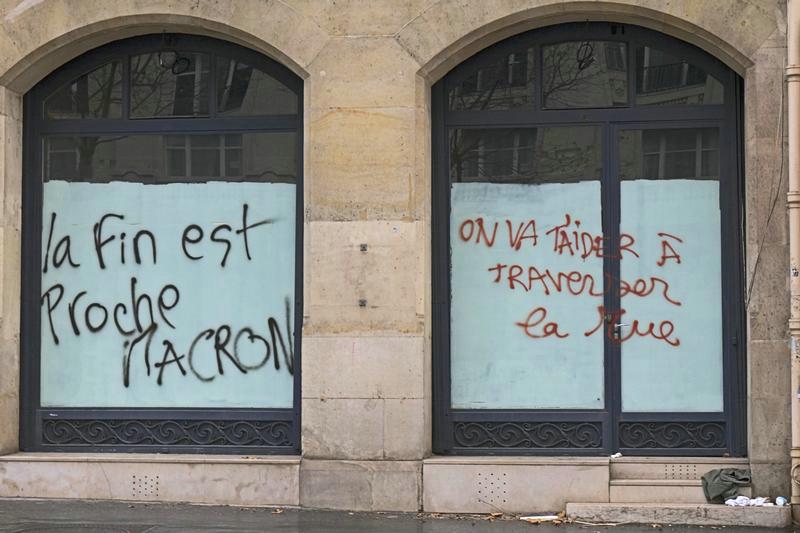 la fin est
Proche
MACRON
ON VA T'AIDER À
TRAVERSER
la Rue